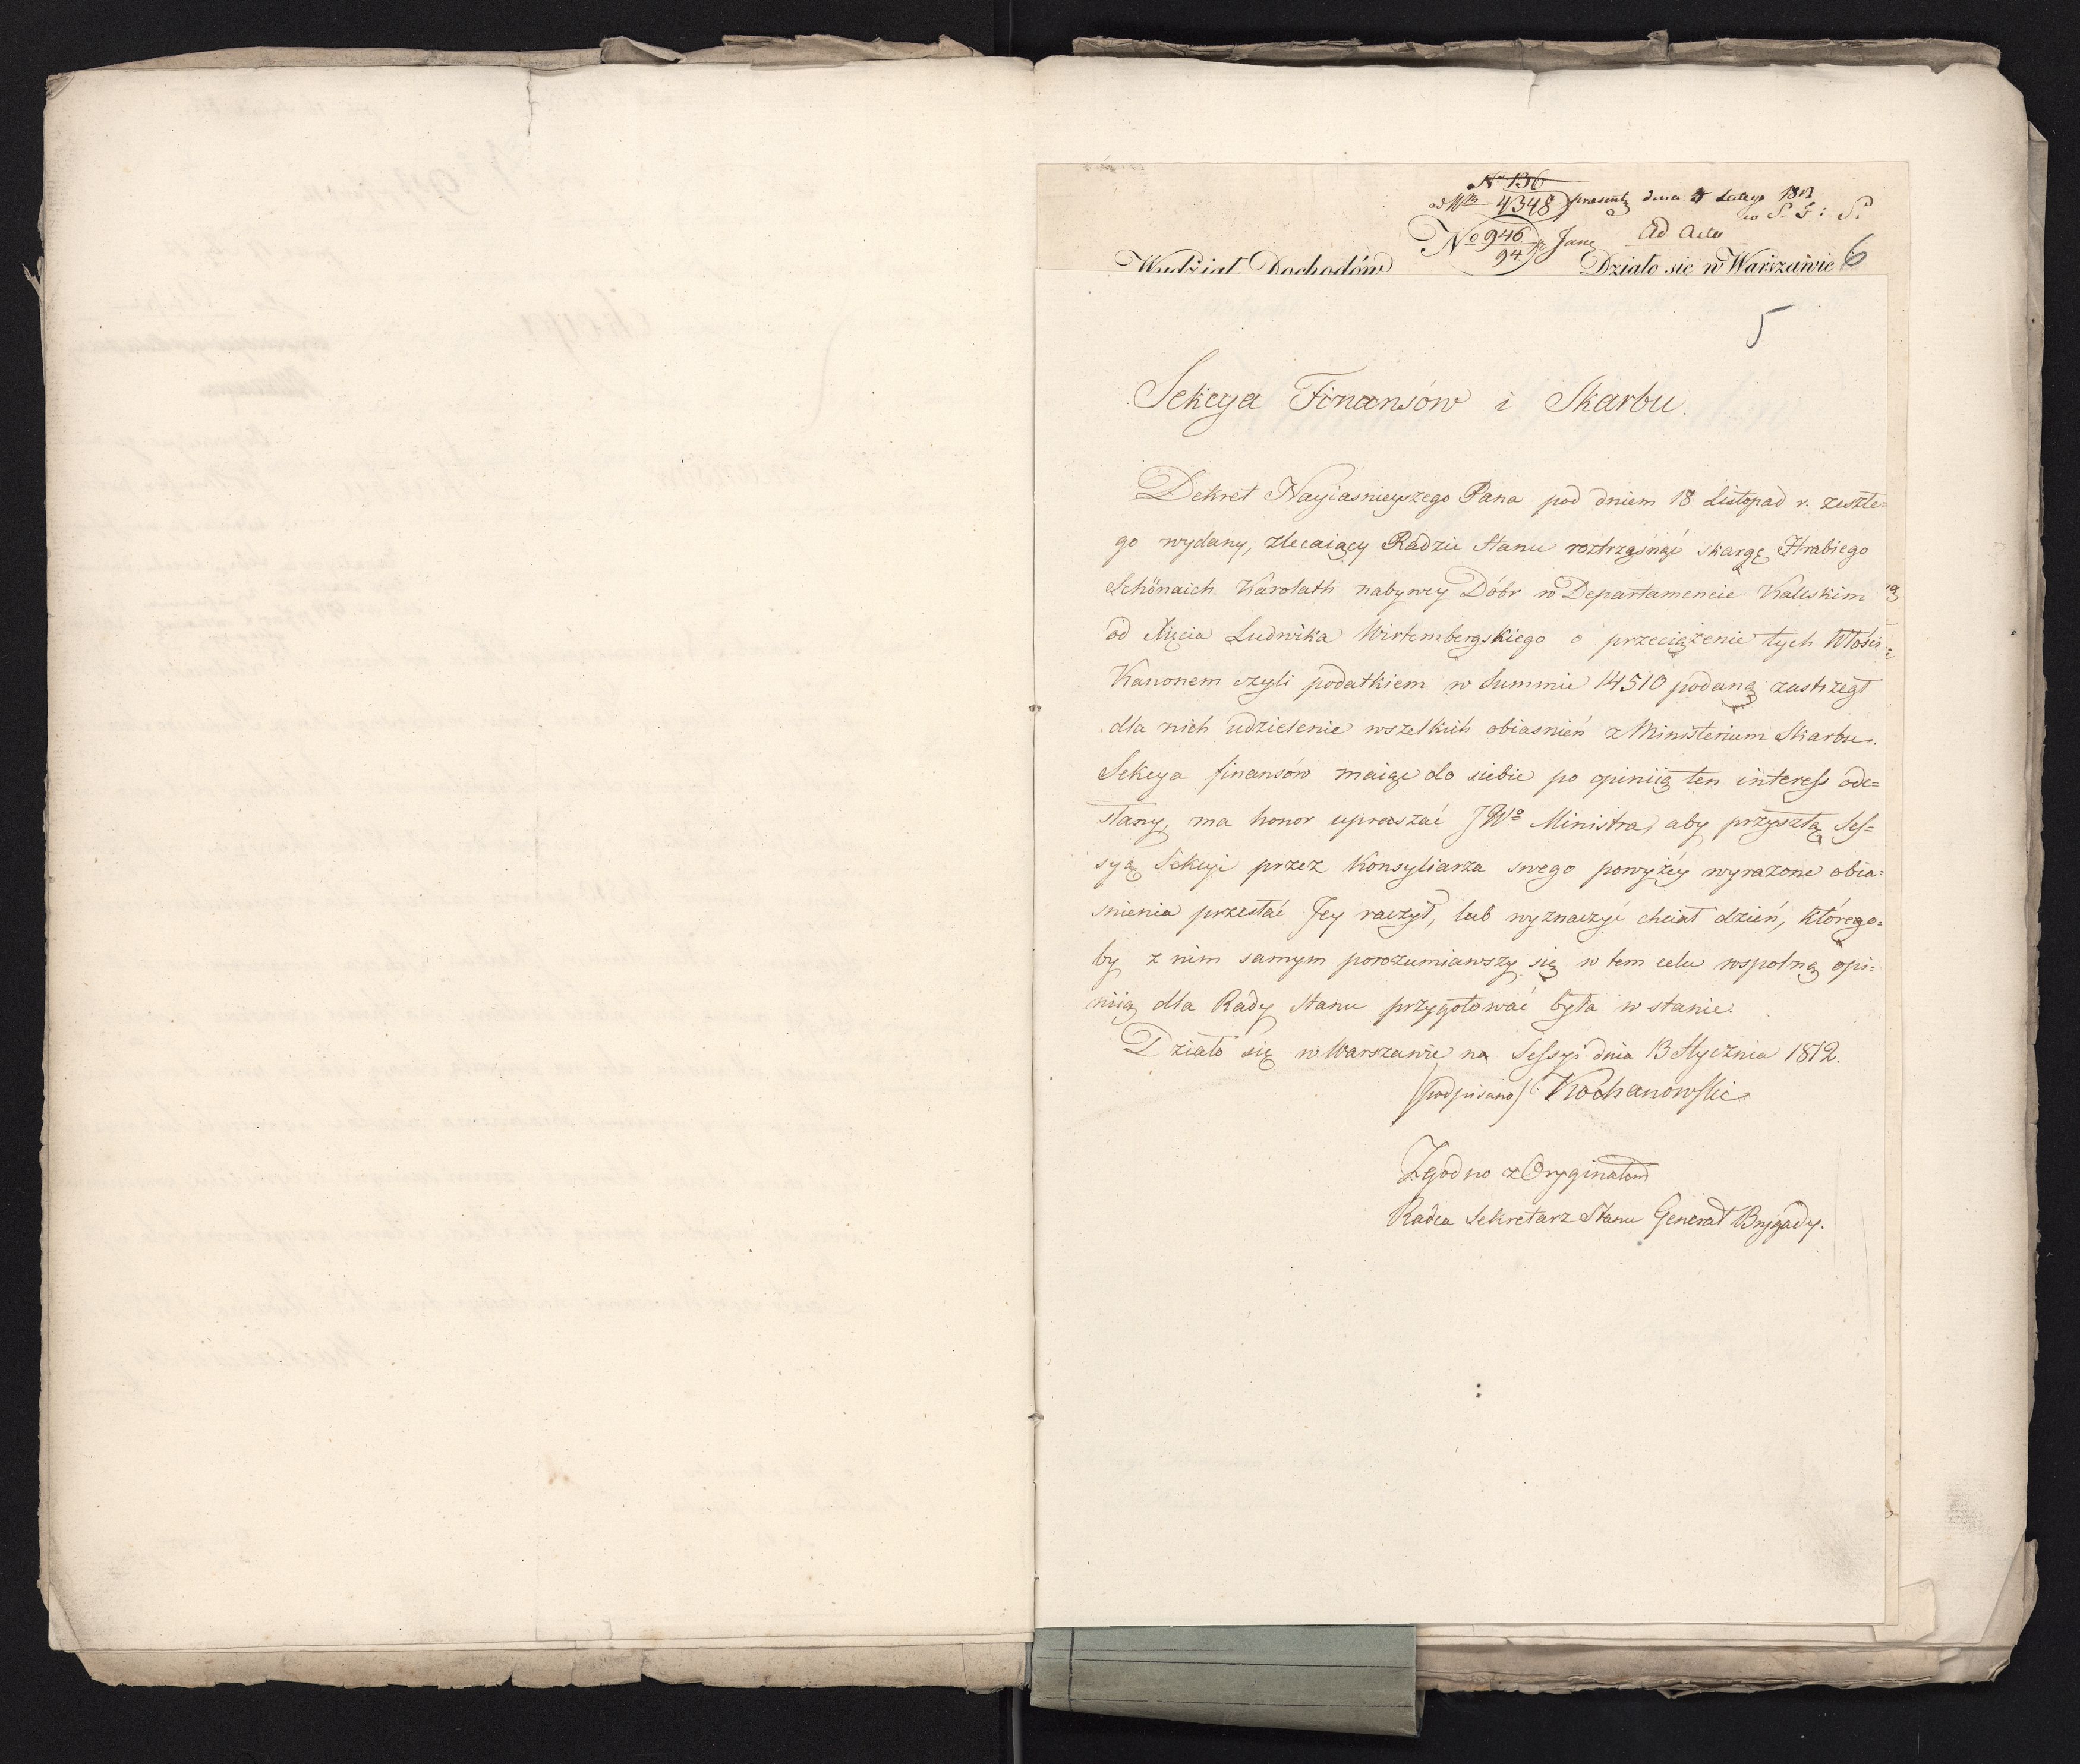 No 136
4348 praesent dnia 4 Lutego 1812
w S. F: S.
No 946 Ad Acta
94
Wydział Dochodów Działo się w Warszawie 6
5
Sekcya Finansów i Skarbu.
Dekret Nayiasnieyszego Pana pod dniem 18 Listopad r. zeszłe=
go wydany, zlecaiący Radzie Stanu roztrząsnąć skargę Hrabiego
Schönaich Karolath nabywcy Dóbr w Departamencie Kaliskim
od Xięcia Ludwika Wirtembergskiego o przeciążenie tych Włości
Kanonem czyli podatkiem w Summie 14510 podaną zastrzegł
dla nich udzielenie wszelkich obiasnień z Ministerium Skarbu.
Sekcya finansów maiąc do siebie po opiniią ten interess ode=
słany, ma honor upraszać JWo Ministra, aby przyszłą Ses=
syą Sekcyi przez Konsyliarza swego powyżéy wyrażone obia=
snienia przesłać Jey raczył, lub wyznaczyć chciał dzień, którego=
by z nim samym porozumiawszy się w tem celu wspolną opi=
niią dla Rady Stanu przygotować była w stanie.
Działo się w Warszawie na Sessyi dnia 13 Stycznia 1812.
(podpisano) Kochanowski
Zgodno z Oryginałem
Radca Sekretarz Stanu Generał Brygady.